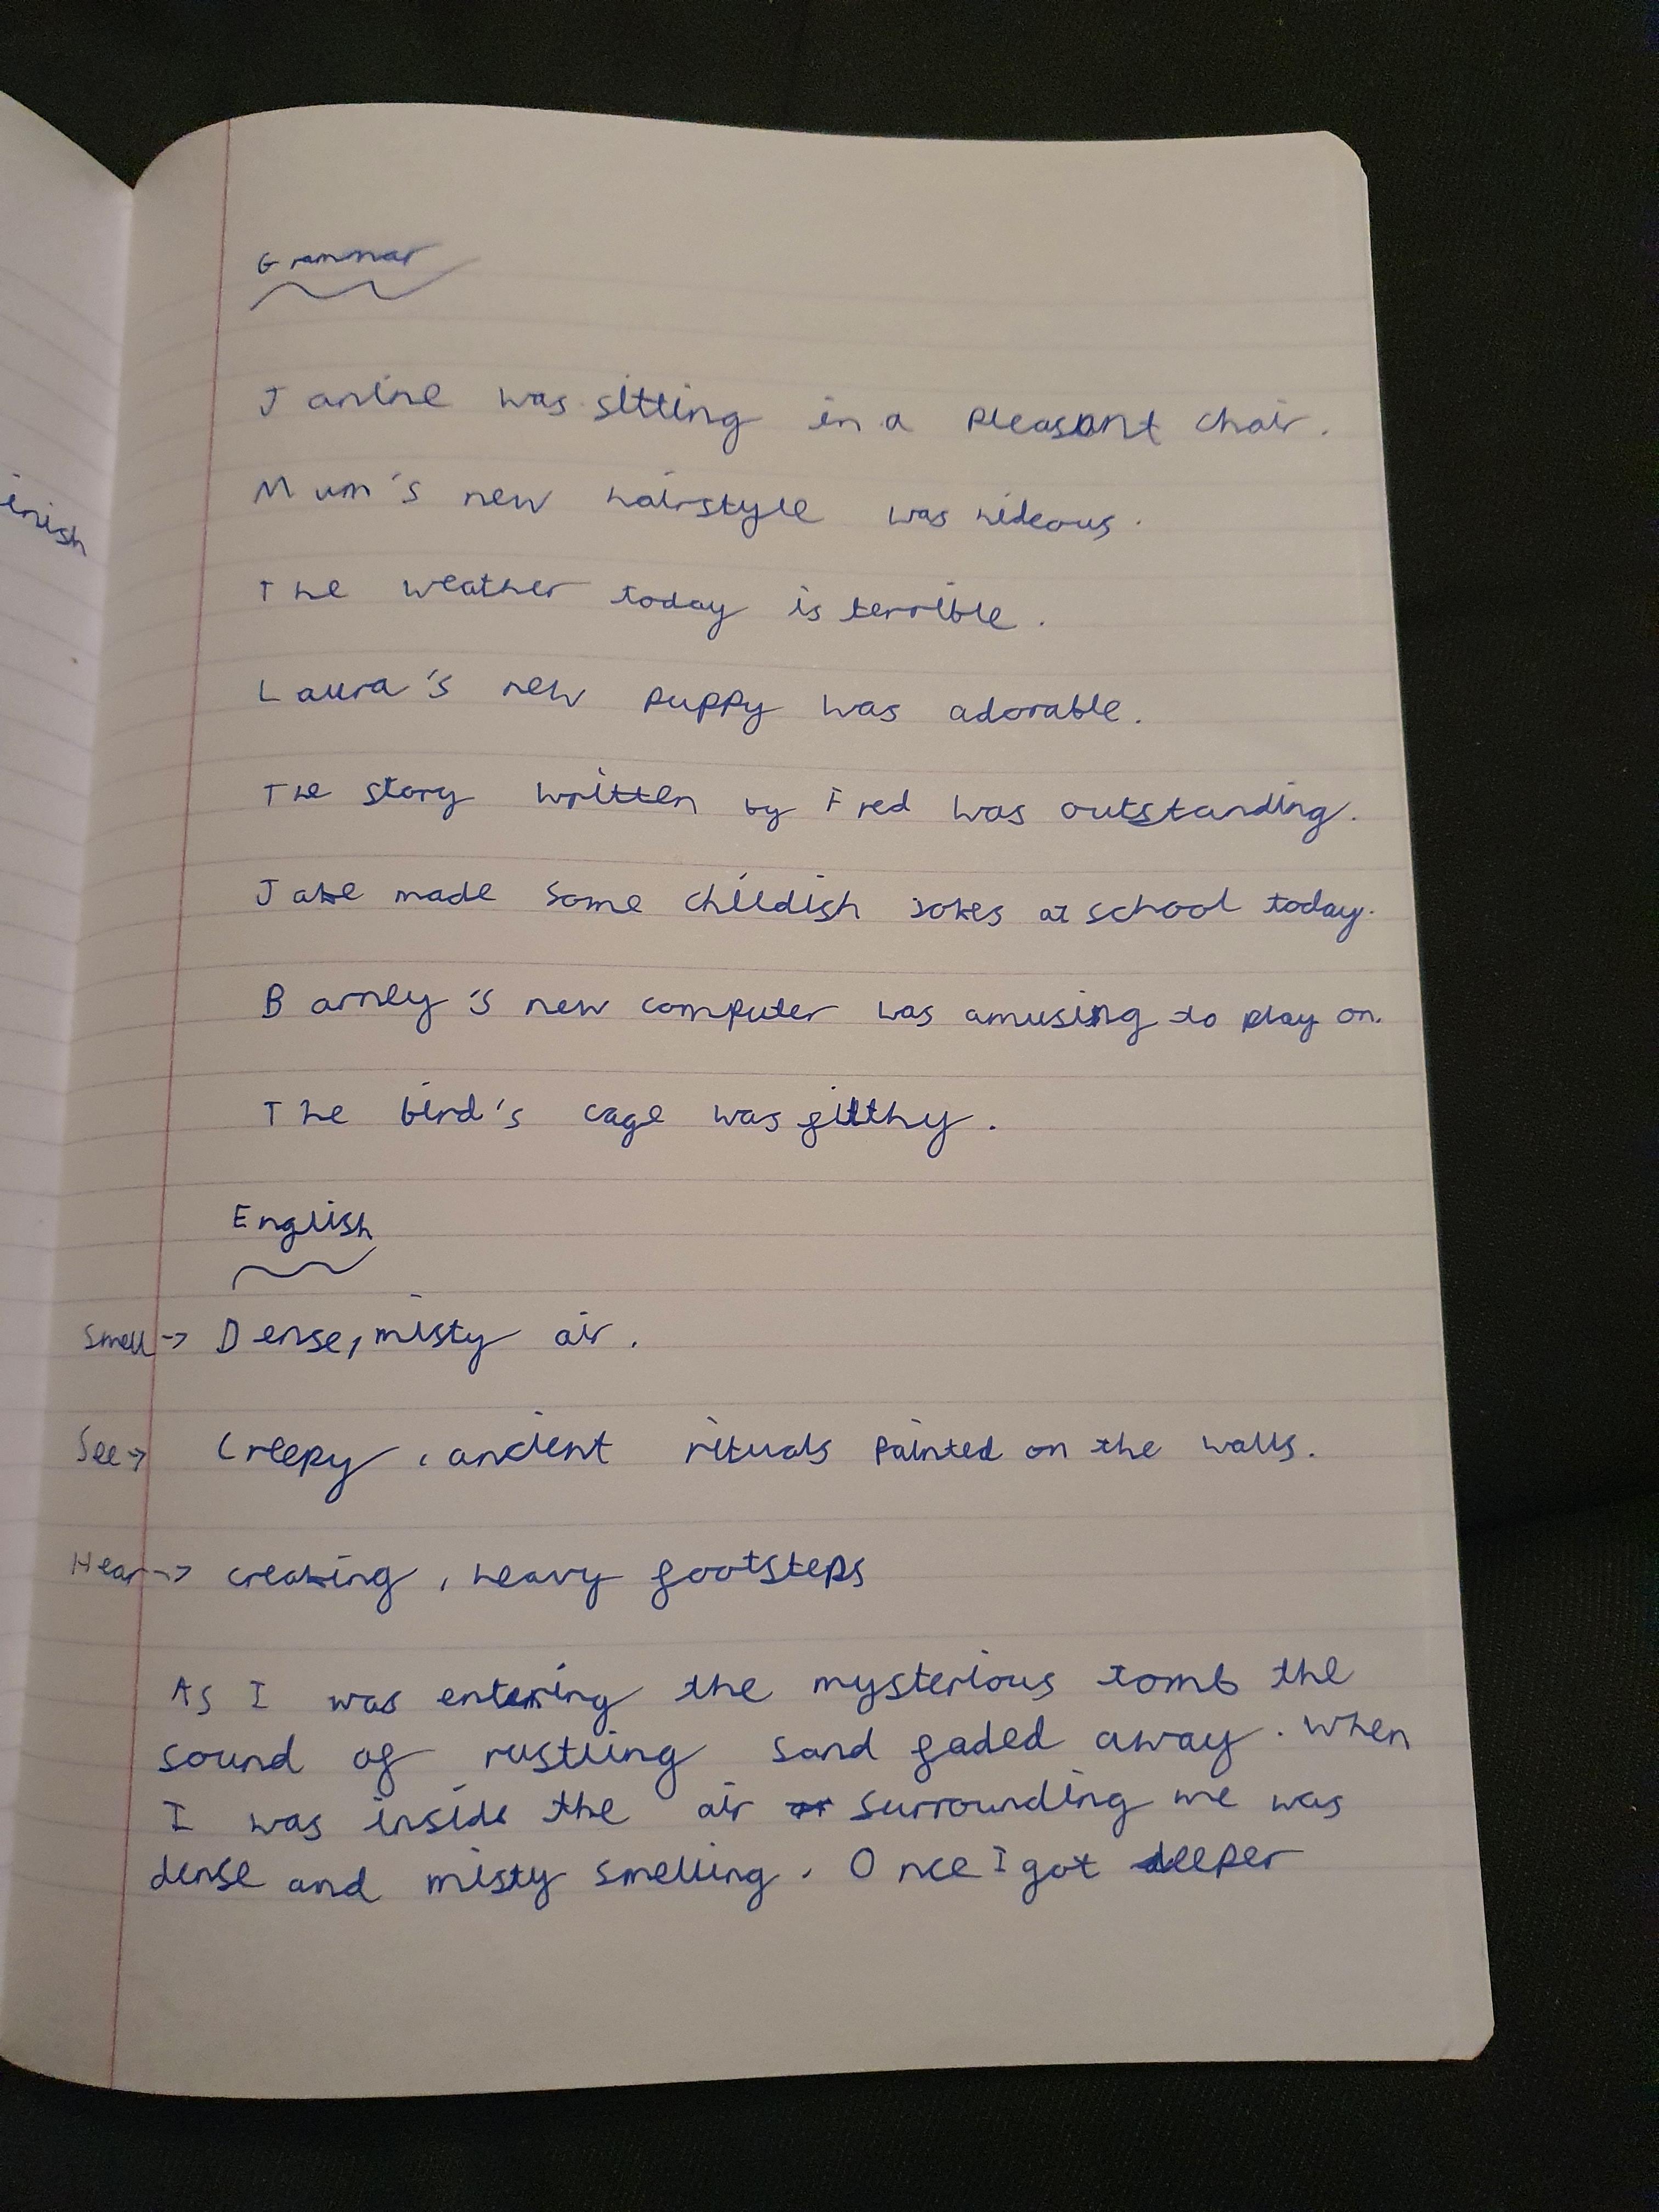 Grammar
Janine was sitting in a pleasant chair.
Mum's new hairstyle was hideous.
inish
The weather today is terrible.
Laura's new puppy was adorable.
The story written by Fred was outstanding.
Jake made some childish jokes at school today.
Barney's new computer was amusing to play on.
The bird's cage was filthy.
English
Smell -> Dense, misty air.
See -> Creepy, ancient rituals painted on the walls.
Hear -> creaking, heavy footsteps
As I was entering the mysterious tomb the
sound of rustling sand faded away. When
I was inside the air surrounding me was
dense and misty smelling. Once I got deeper